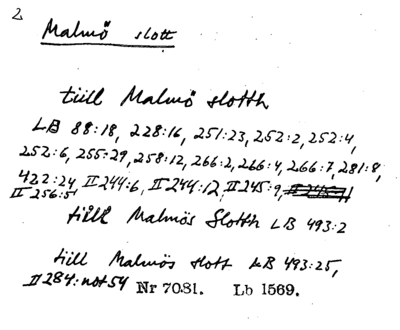 2
Malmö slott
tiill Malmö slotth
LB 88:18, 228:16, 251:23, 252:2, 252:4,
252:6, 255:29, 258:12, 266:2, 266:4, 266:7, 281:8,
422:24, II 244:6, II 244:12, II 245:9,
II 256:5,
tiill Malmös Slotth LB 493:2
till Malmös slott LB 493:25,
II 284: not 54 Nr 7081. Lb 1569.